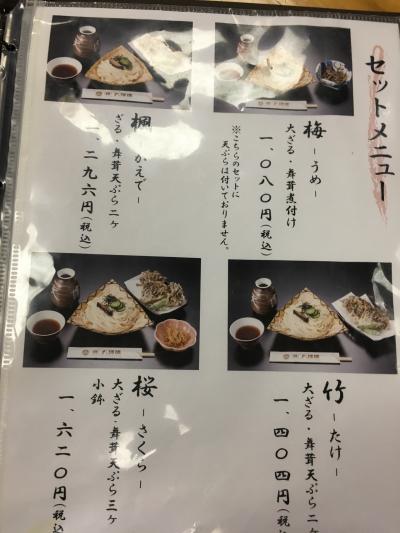 セットメニュー
梅 －うめ－
大ざる・舞茸煮付け
一、〇八〇円（税込）
※こちらのセットに
天ぷらは付いておりません。
かえで－
ざる・舞茸天ぷら二ヶ
一、二九六円（税込）
竹 －たけ－
大ざる・舞茸天ぷら二ヶ
一、四〇四円（税
桜 －さくら－
大ざる・舞茸天ぷら三ヶ
小鉢
一、六二〇円（税込